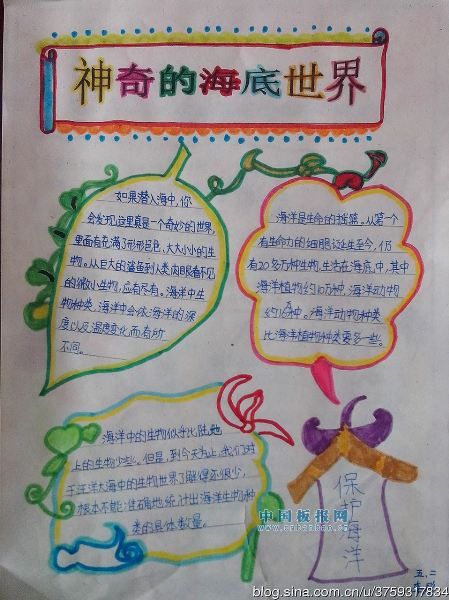 神奇的海底世界
如果潜入海中,你
会发现,这里真是一个奇妙的世界,
里面布满了形形色色、大大小小的生
物。从巨大的鲨鱼到人类肉眼看不见
的微小生物,应有尽有。海洋中生
物种类,海洋中会依海洋的深
度以及温度变化而有所
不同。
海洋是生命的摇篮。从第一个
有生命力的细胞诞生至今,仍
有20多万种生物,生活在海底,中,其中
海洋植物约10万种,海洋动物
约16种。海洋动物种类
比海洋植物种类要多一些。
海洋中的生物似乎比陆地
上的生物少些。但是,到今天为止,我们对
于汪洋大海中的生物世界了解得还很少,
根本不能准确地统计出海洋生物种
类的具体数量。
保护海洋
中国板报网
五、二
blog.sina.com.cn/u/3759317834